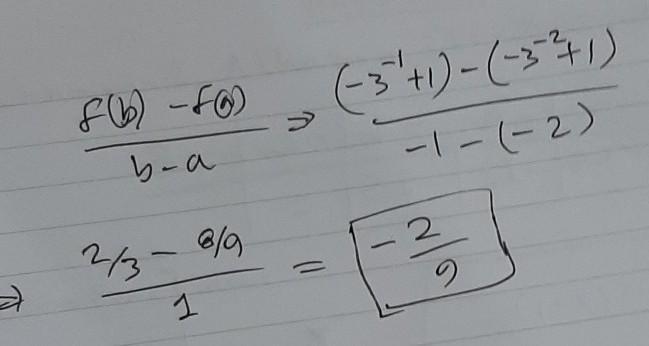 f(b) - f(a) / b - a ⇒ (-3⁻¹+1) - (-3⁻²+1) / -1 - (-2)
⇒ 2/3 - 8/9 / 1 = - 2/9